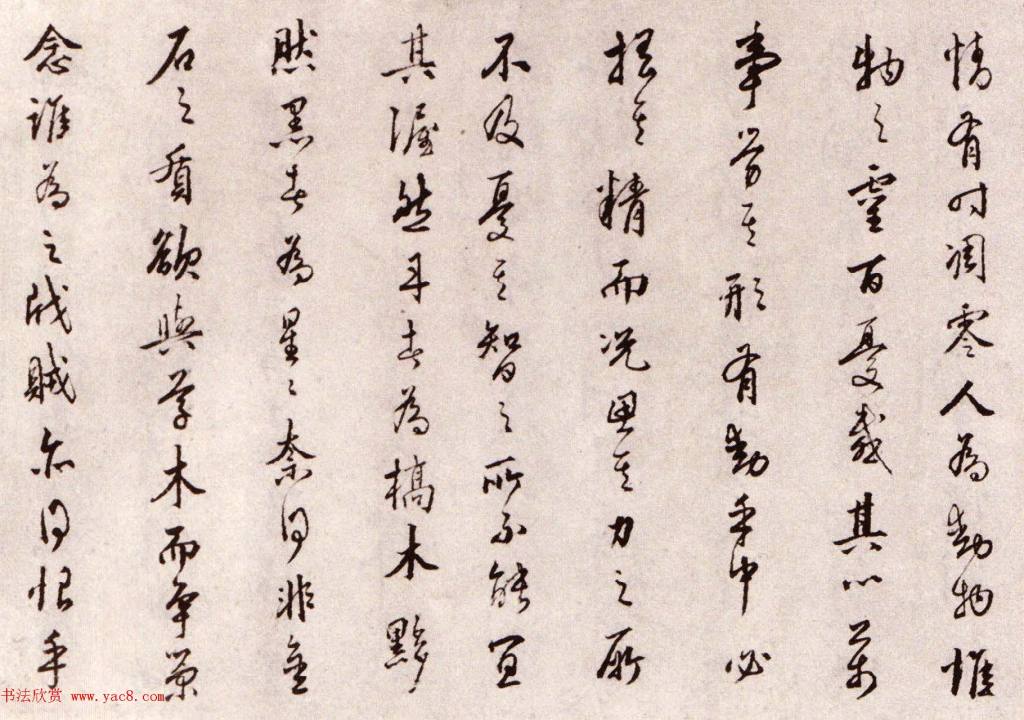 情有时凋零人為動物惟
物之靈百憂感其心萬
事勞其形有動乎中必
搖其精而況思其力之所
不及憂其智之所不能宜
其渥然丹者為槁木黟
然黑者為星〻奈何非金
石之質欲與草木而爭榮
念誰為之戕賊亦何恨乎
书法欣赏 www.yac8.com